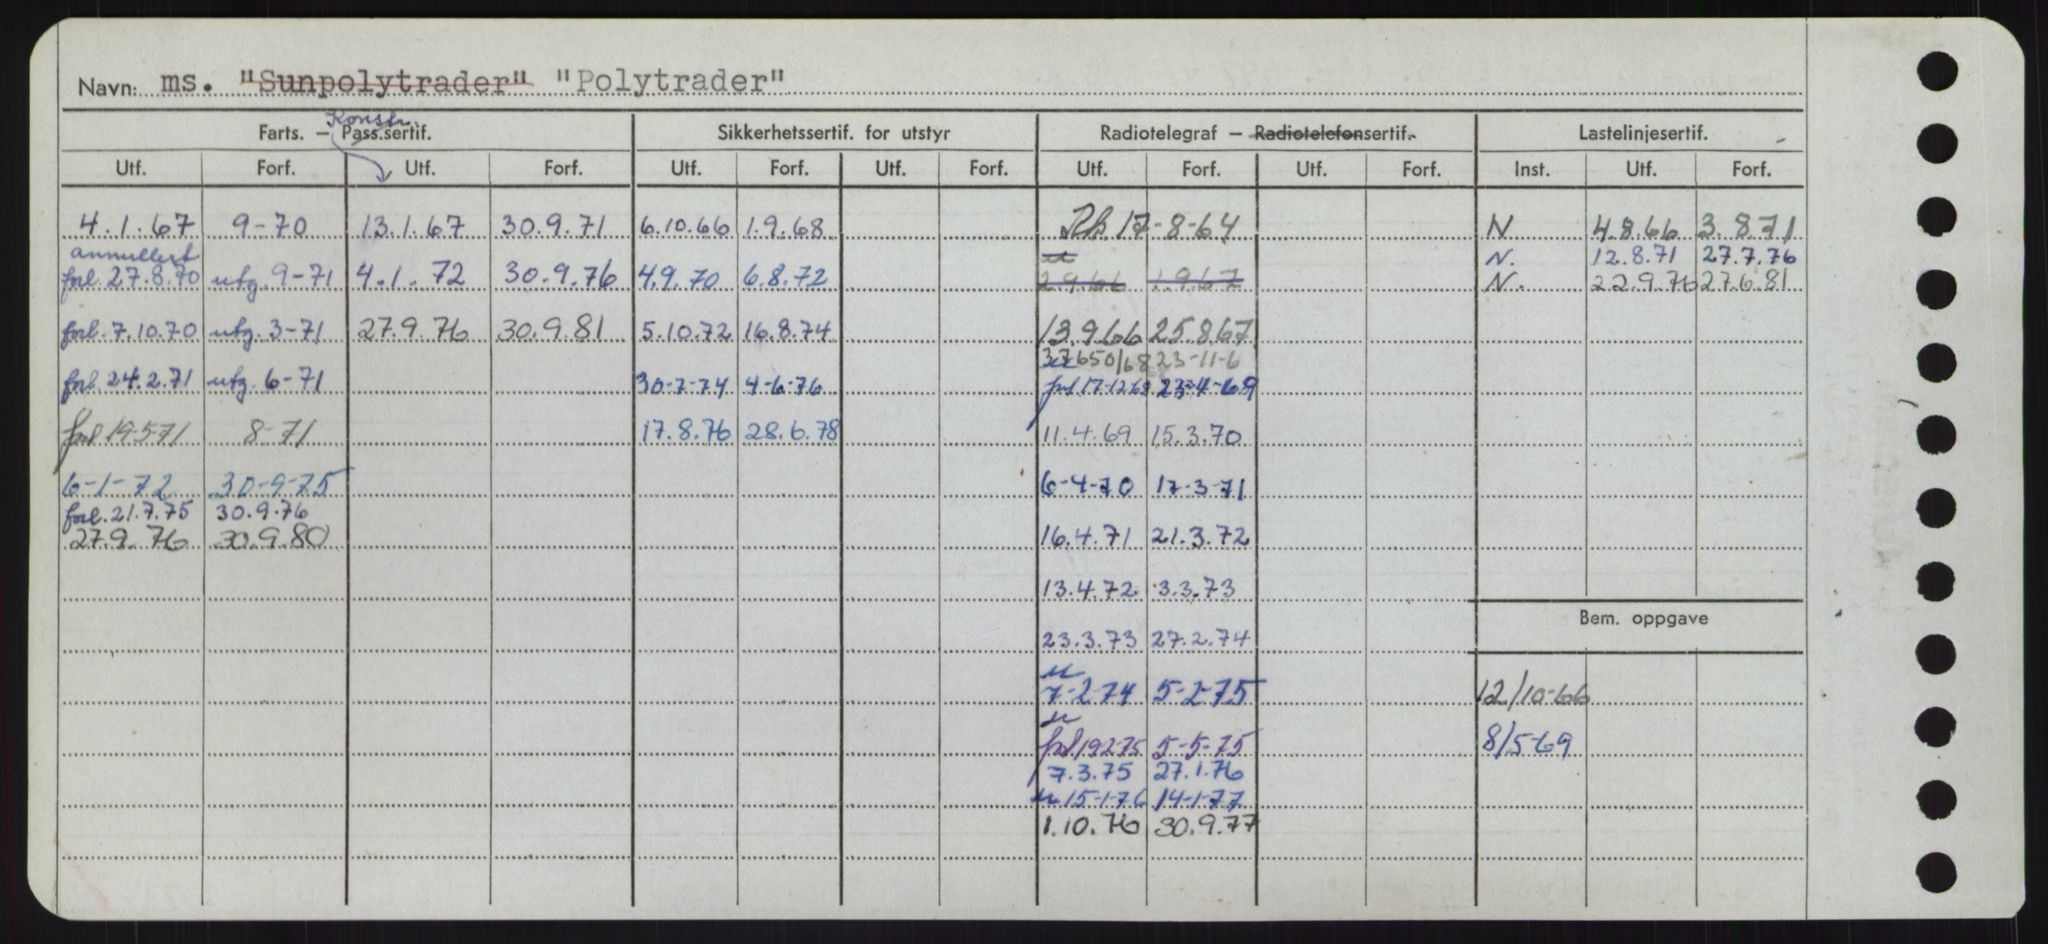 Navn: ms. "Sunpolytrader" "Polytrader"
Konstr.
Farts. – Pass.sertif. Sikkerhetssertif. for utstyr Radiotelegraf – Radiotelefonsertif. Lastelinjesertif.
Utf. Forf. Utf. Forf. Utf. Forf. Utf. Forf. Utf. Forf. Utf. Forf. Inst. Utf. Forf.
4.1.67 9-70 13.1.67 30.9.71 6.10.66 1.9.68 17-8-64 N 4.8.66 3.8.71
annullert N. 12.8.71 27.7.76
forl. 27.8.70 utg. 9-71 4.1.72 30.9.76 4.9.70 6.8.72 2.9.66 1.9.67 N. 22.9.76 27.6.81
forl. 7.10.70 utg. 3-71 27.9.76 30.9.81 5.10.72 16.8.74 13.9.66 25.8.67
37650/68 23-11-6
forl. 24.2.71 utg. 6-71 30-7-74 4-6-76 forl 17-12-68 23-4-69
forl 19-5-71 8-71 17.8.76 28.6.78 11.4.69 15.3.70
6-1-72 30-9-75 6-4-70 17-3-71
forl. 21.7.75 30.9.76
27.9.76 30.9.80 16.4.71 21.3.72
13.4.72 3.3.73
Bem. oppgave
23.3.73 27.2.74
7-2-74 5-2-75 12/10-66
forl 19-2-75 5-5-75 8/5-69
7.3.75 27.1.76
15-1-76 14-1-77
1.10.76 30.9.77